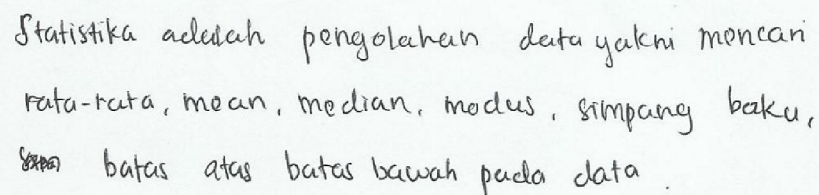 Statistika adalah pengolahan data yakni mencari
rata-rata, mean, median, modus, simpang baku,
batas atas batas bawah pada data.